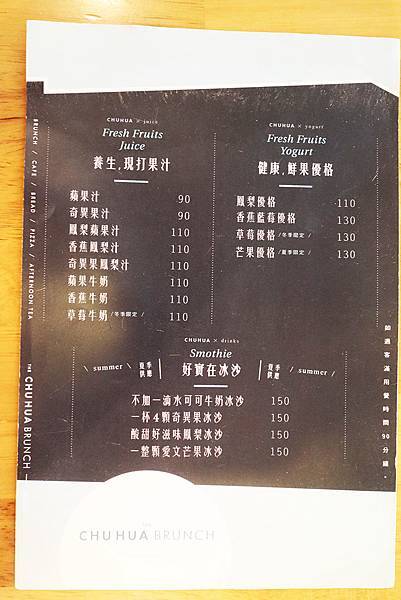 CHUHUA × juice
Fresh Fruits
Juice
養生,現打果汁
蘋果汁 90
奇異果汁 90
鳳梨蘋果汁 110
香蕉鳳梨汁 110
奇異果鳳梨汁 110
蘋果牛奶 110
香蕉牛奶 110
草莓牛奶 /冬季限定/ 110
CHUHUA × yogurt
Fresh Fruits
Yogurt
健康,鮮果優格
鳳梨優格 110
香蕉藍莓優格 130
草莓優格 /冬季限定/ 130
芒果優格 /夏季限定/ 130
CHUHUA × drinks
Smothie
\ summer \ 夏季供應 好實在冰沙 夏季供應 / summer /
不加一滴水可可牛奶冰沙 150
一杯4顆奇異果冰沙 150
酸甜好滋味鳳梨冰沙 150
一整顆愛文芒果冰沙 150
BRUNCH / CAFE / BREAD / PIZZA / AFTERNOON TEA
THE CHUHUA BRUNCH
如遇客滿用餐時間90分鐘。
THE
CHUHUA BRUNCH